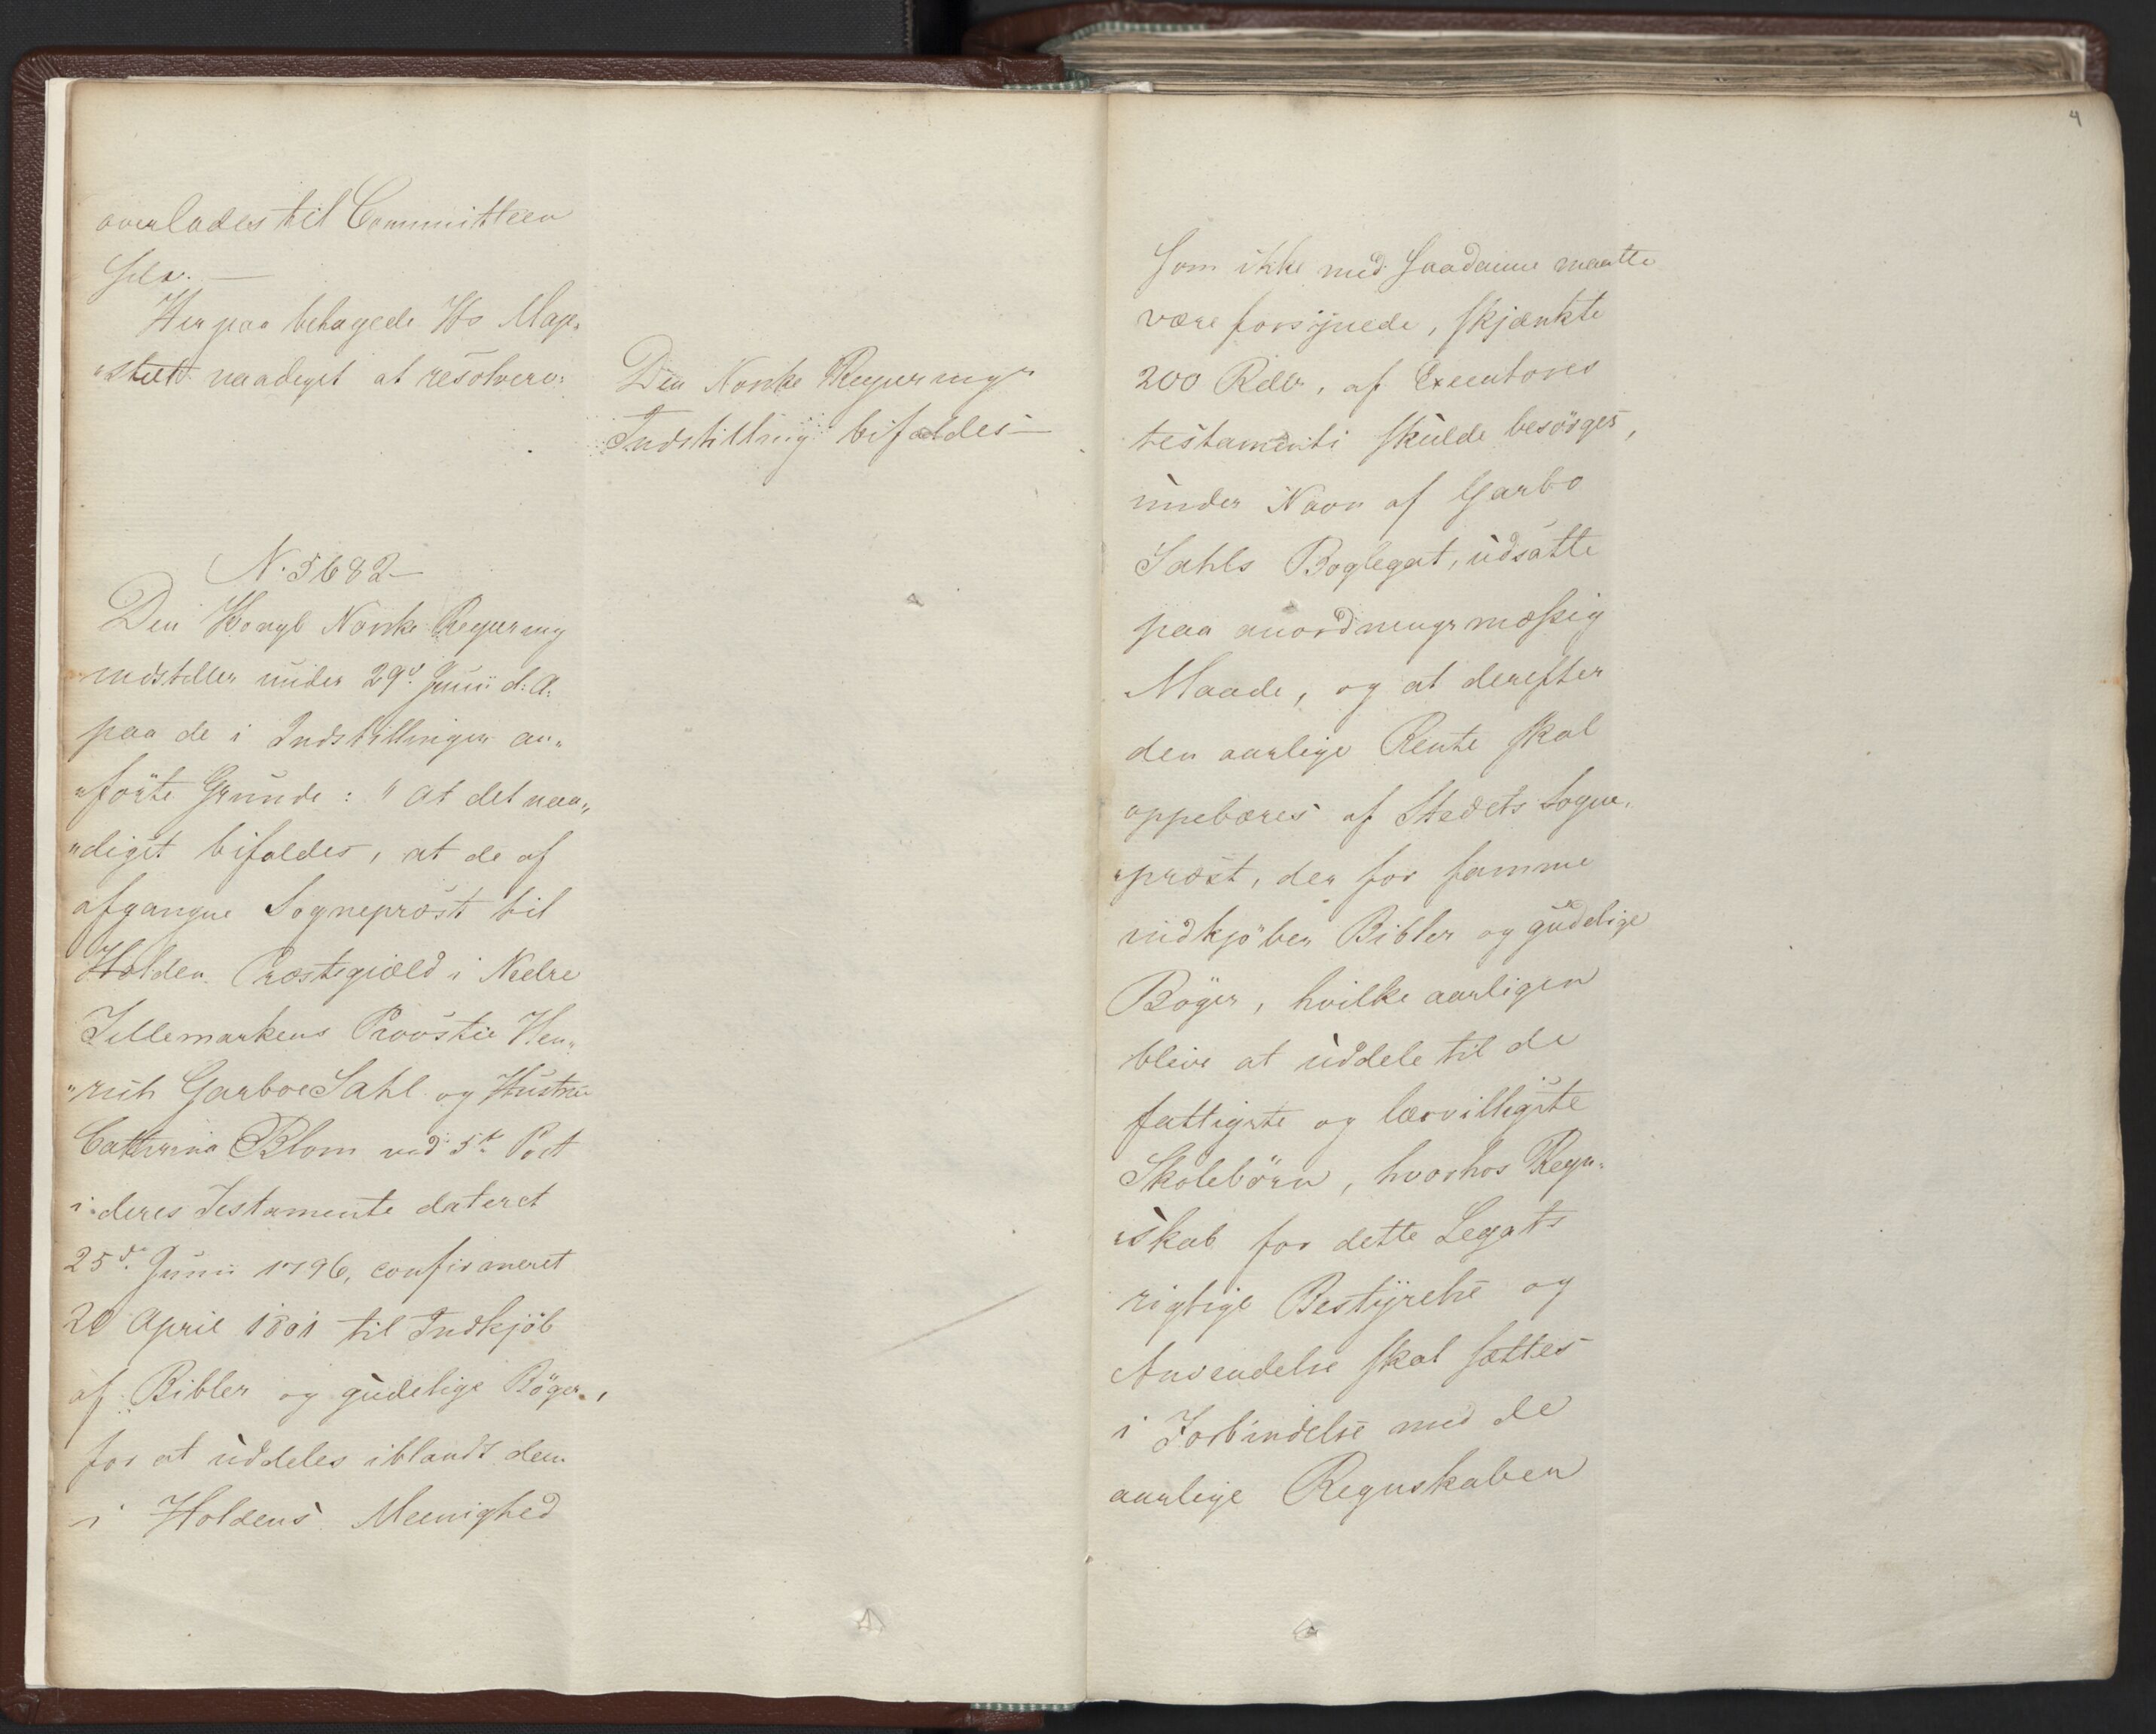 overlades til Committeen
selv. —
Herpaa behagede Hs Maje„
„stæt naadigst at resolvere:
Den Norske Regjerings
Indstilling bifaldes —
N. 5682 —
Den Kongl Norske Regjering
indstiller under 29d. Junii d: A:
paa de i Indstillingen an„
„förte Grunde: "At det naa„
„digst bifaldes, at de af
afgangne Sognepræst til
Holden Præstegiæld i Nedre
Tellemarkens Provstie Hen„
„rich Garboe Sahl og Hustru
Cathrina Blom ved 5te Post
i deres Testamente dateret
25de Junii 1796, confirmeret
20 April 1801 til Indkjöb
af Bibler og gudelige Böger,
for at uddeles iblandt dem
i Holdens Meenighed
4
som ikke med saadanne maatte
være forsÿnede, skjænkte
200 Rdlr, af Executores
testamenti skulde besörges,
under Navn af Garbo
Sahls Boglegat, udsatte
paa anordningsmæssig
Maade, og at derefter
den aarlige Rente skal
oppebæres af Stedets Sogne„
„præst, der for samme
indkjöber Bibler og gudelige
Böger, hvilke aarligen
blive at uddele til de
fattigste og lærvilligste
Skolebörn, hvorhos Regn„
„skab for dette Legats
rigtige Bestÿrelse og
Anvendelse skal sættes
i Forbindelse med de
aarlige Regnskaber